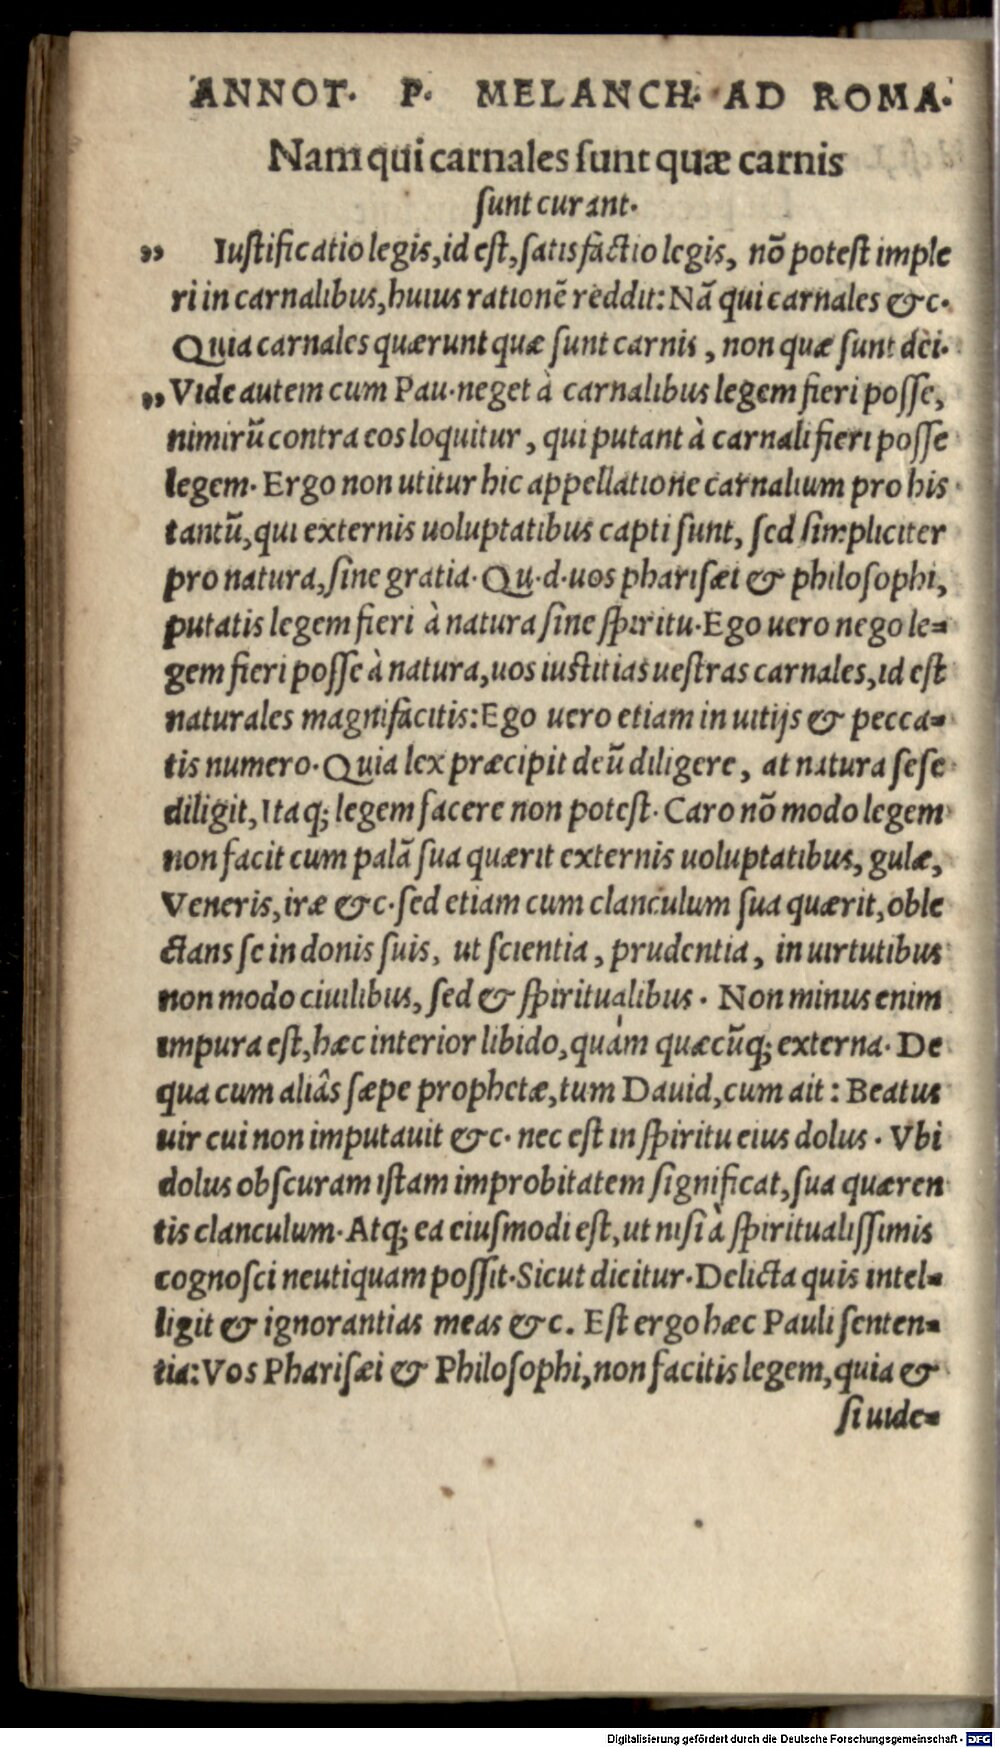 ANNOT. P. MELANCH. AD ROMA.
Nam qui carnales sunt quæ carnis
sunt curant.
„ Iustificatio legis, id est, satisfactio legis, nõ potest imple
ri in carnalibus, huius rationẽ reddit: Nã qui carnales &c.
Quia carnales quærunt quæ sunt carnis, non quæ sunt dei.
„ Vide autem cum Pau. neget à carnalibus legem fieri posse,
nimirũ contra eos loquitur, qui putant à carnali fieri posse
legem. Ergo non utitur hic appellatione carnalium pro his
tantũ, qui externis uoluptatibus capti sunt, sed simpliciter
pro natura, sine gratia. Qu. d. uos pharisæi & philosophi,
putatis legem fieri à natura sine spiritu. Ego uero nego le=
gem fieri posse à natura, uos iustitias uestras carnales, id est
naturales magnifacitis: Ego uero etiam in uitijs & pecca=
tis numero. Quia lex præcipit deũ diligere, at natura sese
diligit, Itaq; legem facere non potest. Caro nõ modo legem
non facit cum palã sua quærit externis uoluptatibus, gulæ,
Veneris, iræ &c. sed etiam cum clanculum sua quærit, oble
ctans se in donis suis, ut scientia, prudentia, in uirtutibus
non modo ciuilibus, sed & spiritualibus. Non minus enim
impura est, hæc interior libido, quàm quæcũq; externa. De
qua cum aliâs sæpe prophetæ, tum Dauid, cum ait: Beatus
uir cui non imputauit &c. nec est in spiritu eius dolus. Vbi
dolus obscuram istam improbitatem significat, sua quæren
tis clanculum. Atq; ea eiusmodi est, ut nisi à spiritualissimis
cognosci neutiquam possit. Sicut dicitur. Delicta quis intel=
ligit & ignorantias meas &c. Est ergo hæc Pauli senten=
tia: Vos Pharisæi & Philosophi, non facitis legem, quia &
si uide=
Digitalisierung gefördert durch die Deutsche Forschungsgemeinschaft - DFG